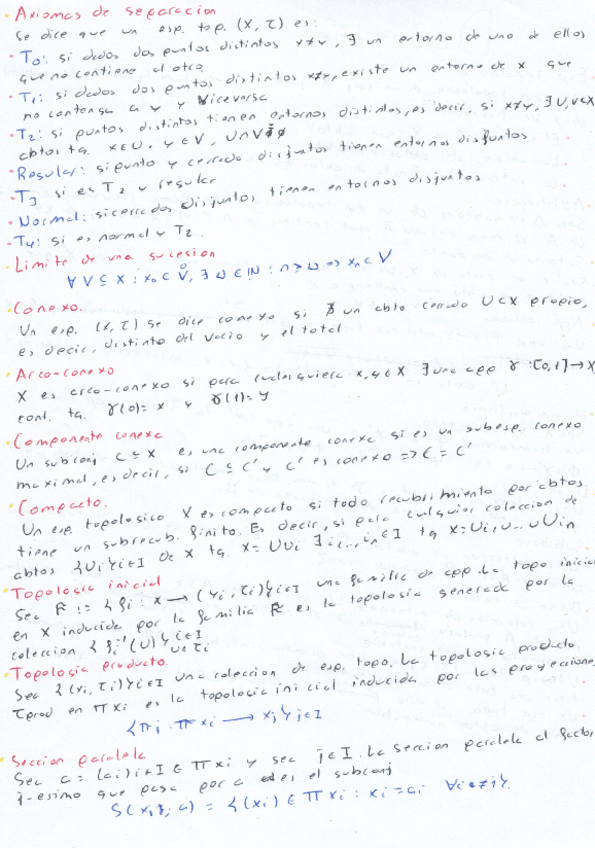 Axiomas de separacion
Se dice que un esp. top. (X, τ) es:
- T₀: si dados dos puntos distintos x≠y, ∃ un entorno de uno de ellos
que no contiene el otro.
- T₁: si dados dos puntos distintos x≠y, existe un entorno de x que
no contenga a y y viceversa
- T₂: si puntos distintos tienen entornos distintos, es decir, si x≠y, ∃ U, V ⊂ X
abtos tq. x∈U, y∈V, U∩V ∅
- Regular: si punto y cerrado disjuntos tienen entornos disjuntos
- T₃ si es T₂ y regular
- Normal: si cerrados disjuntos tienen entornos disjuntos
- T₄: si es normal y T₂.
Limite de una sucesion
∀ V ⊆ X : x₀ ∈ V̊, ∃ ∈ ℕ : n ≥ ⇒ xₙ ∈ V
Conexo.
Un esp. (X, τ) se dice conexo si ∄ un abto cerrado U⊂X propio,
es decir, distinto del vacio y el total
Arco-conexo
X es arco-conexo si para cualesquiera x, y ∈ X ∃ una app γ : [0,1] → X
cont. tq. γ(0) = x y γ(1) = y
Componente conexa
Un subconj C ⊆ X es una componente conexa si es un subesp. conexo
maximal, es decir, si C ⊆ C' y C' es conexo ⇒ C = C'
Compacto.
Un esp. topologico X es compacto si todo recubrimiento por abtos
tiene un subrecub. finito. Es decir, si para cualquier coleccion de
abtos {Ui}i∈I de X tq. X = ∪Ui ∃ i₁,..., iₙ ∈ I tq X = Ui₁ ∪...∪ Uiₙ
Topologia inicial
Sea F := {fi : X → (Yi, τi)}i∈I una familia de app. La topo inicial
en X inducida por la familia F es la topologia generada por la
coleccion {fi⁻¹(U)}i∈I U∈τi
Topologia producto.
Sea {(Xi, τi)}i∈I una coleccion de esp. topo. La topologia producto
τprod en ΠXi es la topologia inicial inducida por las proyecciones
{Πj : ΠXi → Xj}j∈I
Seccion paralela
Sea a = (ai)i∈I ∈ ΠXi y sea j∈I. La seccion paralela al factor
j-esimo que pasa por a es el subconj
S(Xj; a) = {(xi) ∈ ΠXi : xi = ai ∀i≠j}.